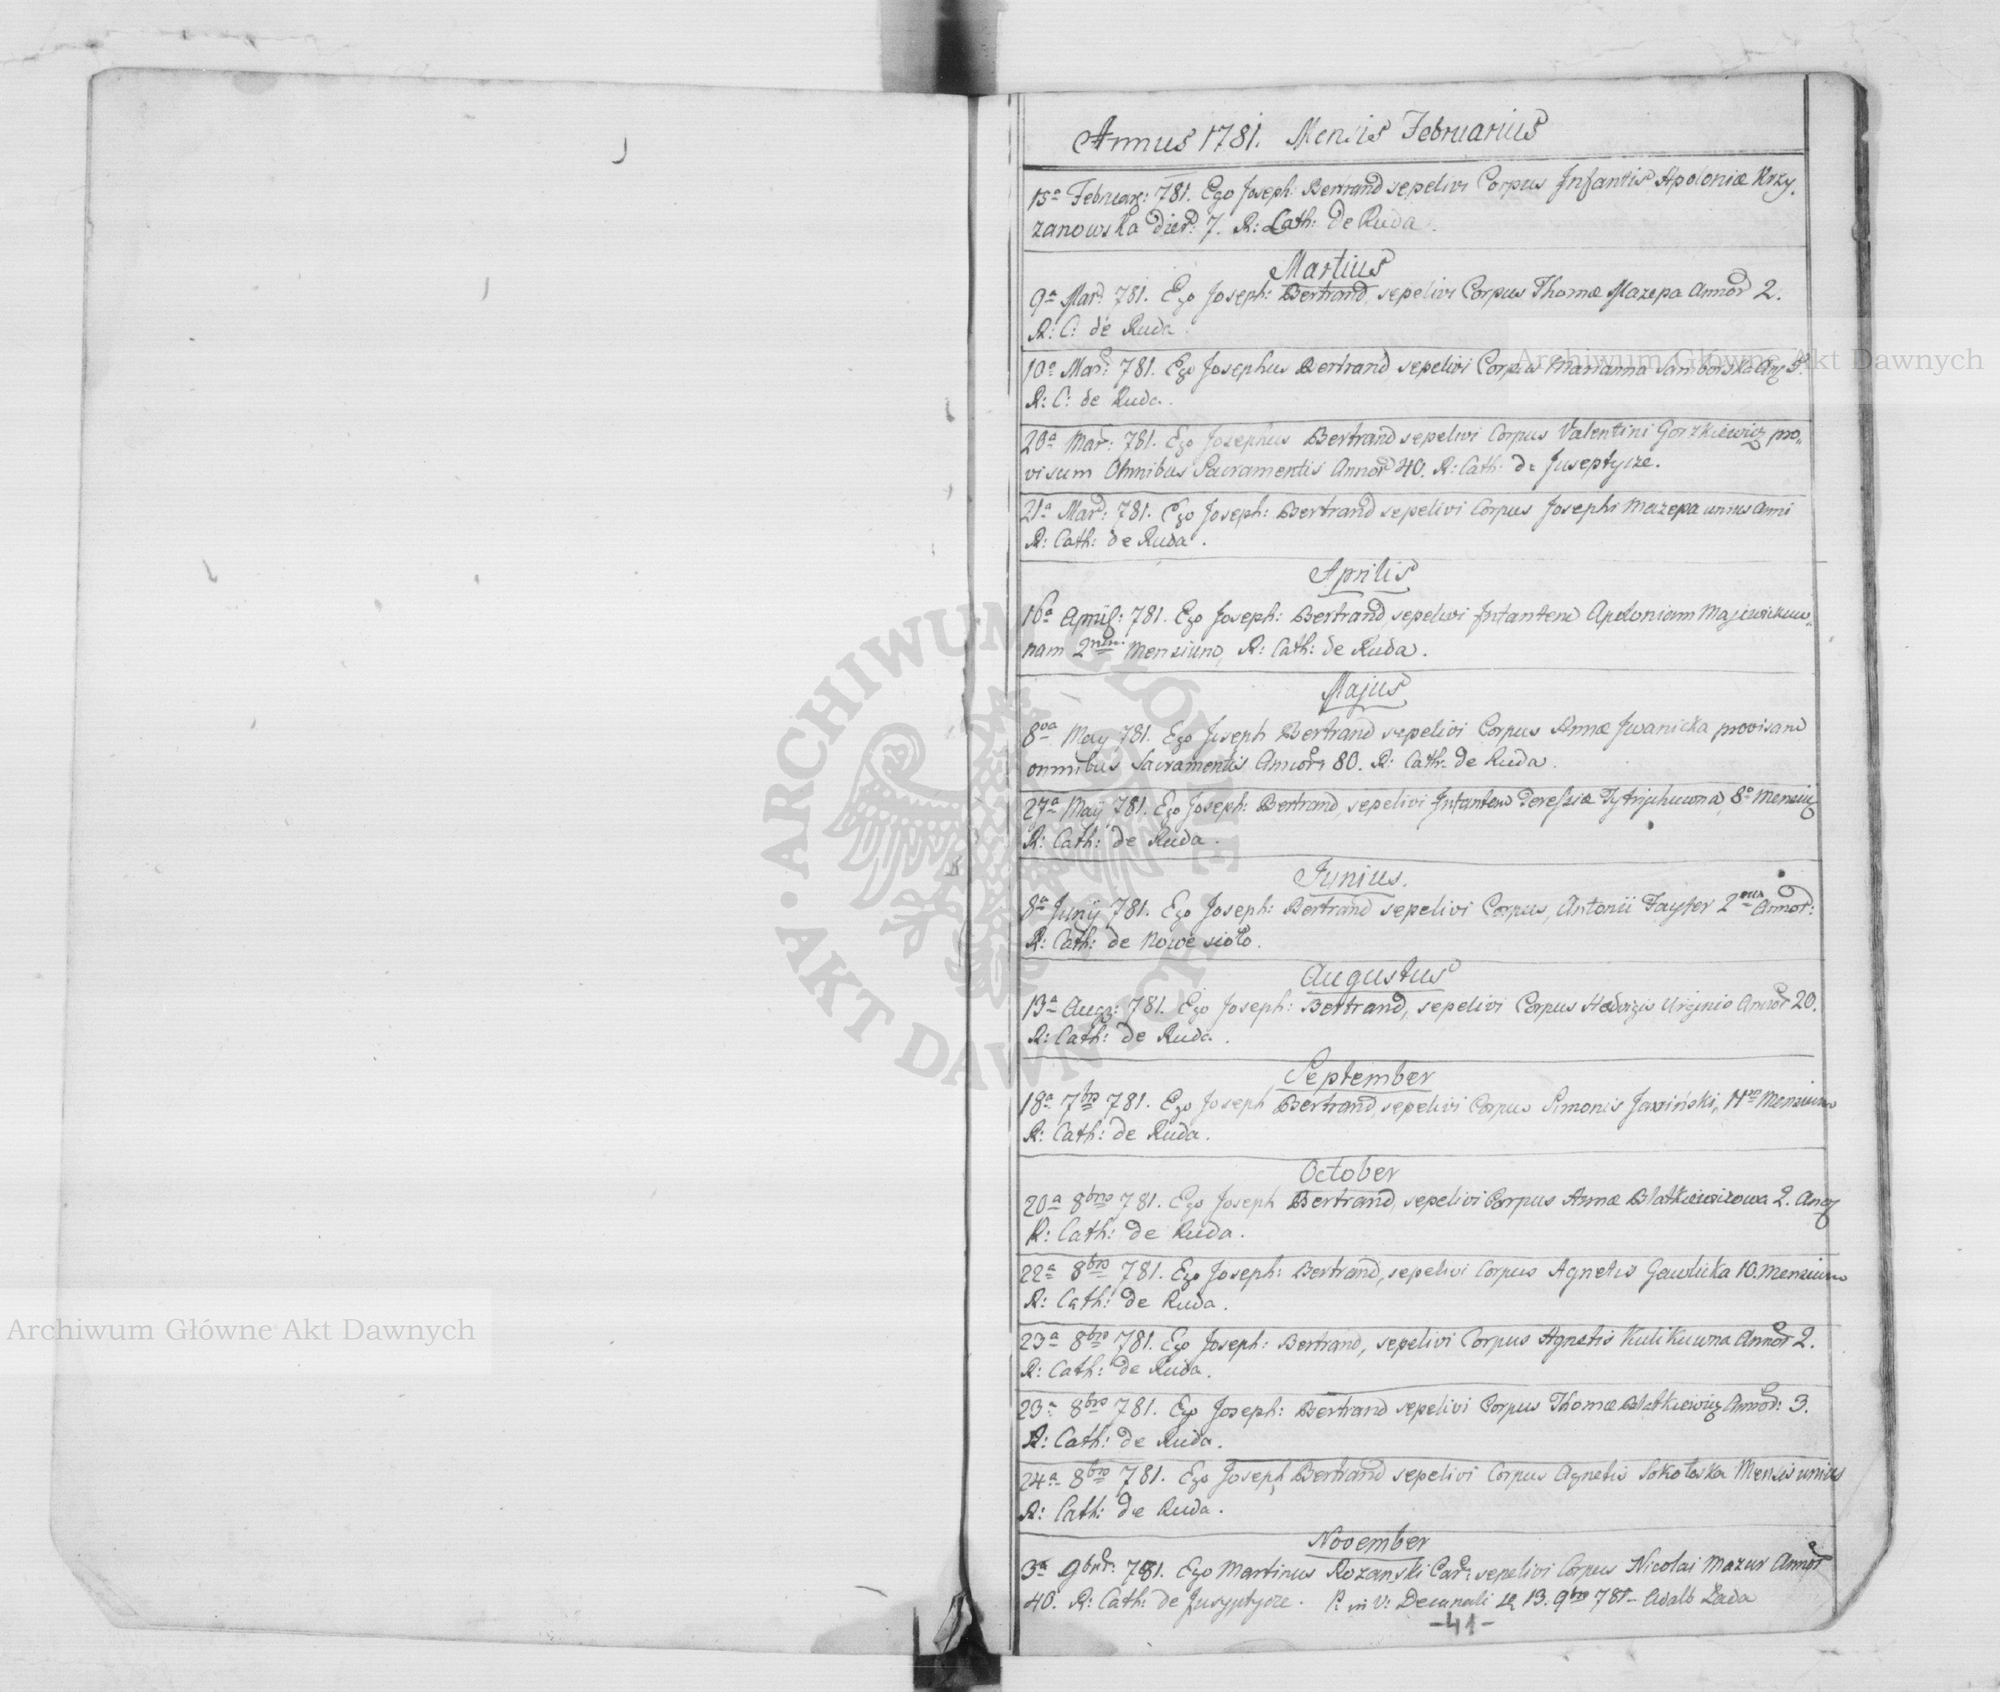 Annus 1781. Mensis Februarius
15a Februar: 781. Ego Joseph: Bertrand sepelivi Corpus Infantis Apoloniæ Krzy-
zanowska dier: 7. R: Cath: de Ruda.
Martius
9a Mar: 781. Ego Joseph: Bertrand, sepelivi Corpus Thomæ Mazepa Annor 2.
R: C: de Ruda.
10a Mar: 781. Ego Josephus Bertrand sepelivi Corpus Marianna Samborska 5.
R: C: de Ruda.
20a Mar: 781. Ego Josephus Bertrand sepelivi Corpus Valentini Gorzkiewicz pro-
visum Omnibus Sacramentis Annor 40. R: Cath: de Juseptycze.
21a Mar: 781. Ego Joseph: Bertrand sepelivi Corpus Josephi Mazepa unius Anni
R: Cath: de Ruda.
Aprilis
16a April: 781. Ego Joseph: Bertrand, sepelivi Infantem Apoloniam
nam Mensium, R: Cath: de Ruda.
Majus
8va May 781. Ego Joseph Bertrand sepelivi Corpus Annæ Iwanicka provisam
omnibus Sacramentis Annor 80. R: Cath: de Ruda.
27a Maij 781. Ego Joseph: Bertrand, sepelivi Infantem 8 Mensiu
R: Cath: de Ruda.
Junius.
8a Junij 781. Ego Joseph: Bertrand sepelivi Corpus, Antonii Annor:
R: Cath: de Nowe sioło.
Augustus
13a Aug: 781. Ego Joseph: Bertrand, sepelivi Corpus Hedvigis Virginis Annor 20.
R: Cath: de Ruda.
September
18a 7bris 781. Ego Joseph Bertrand, sepelivi Corpus Simonis Mensium
R: Cath: de Ruda.
October
20a 8bris 781. Ego Joseph Bertrand, sepelivi Corpus Annæ Blatkiewiczowa 2. Ano
R: Cath: de Ruda.
22a 8bris 781. Ego Joseph: Bertrand, sepelivi Corpus Agnetis Gawlicka 10. Mensium
R: Cath: de Ruda.
23a 8bris 781. Ego Joseph: Bertrand, sepelivi Corpus Agnetis Kulikuwna Annor 2.
R: Cath: de Ruda.
23a 8bris 781. Ego Joseph: Bertrand sepelivi Corpus Thomæ Blatkiewicz Annor: 3.
R: Cath: de Ruda.
24a 8bris 781. Ego Joseph Bertrand sepelivi Corpus Agnetis Sokołoska Mensis unius
R: Cath: de Ruda.
November
3a 9bris: 781. Ego Martinus Rozanski sepelivi Corpus Nicolai Mazur Annor
40. R: Cath: de Jusyptycze. P. in V: Decanali 13. 9bris 781 - Adalb Łada
-41-
Archiwum Główne Akt Dawnych
Archiwum Główne Akt Dawnych
ARCHIWUM GŁÓWNE AKT DAWNYCH